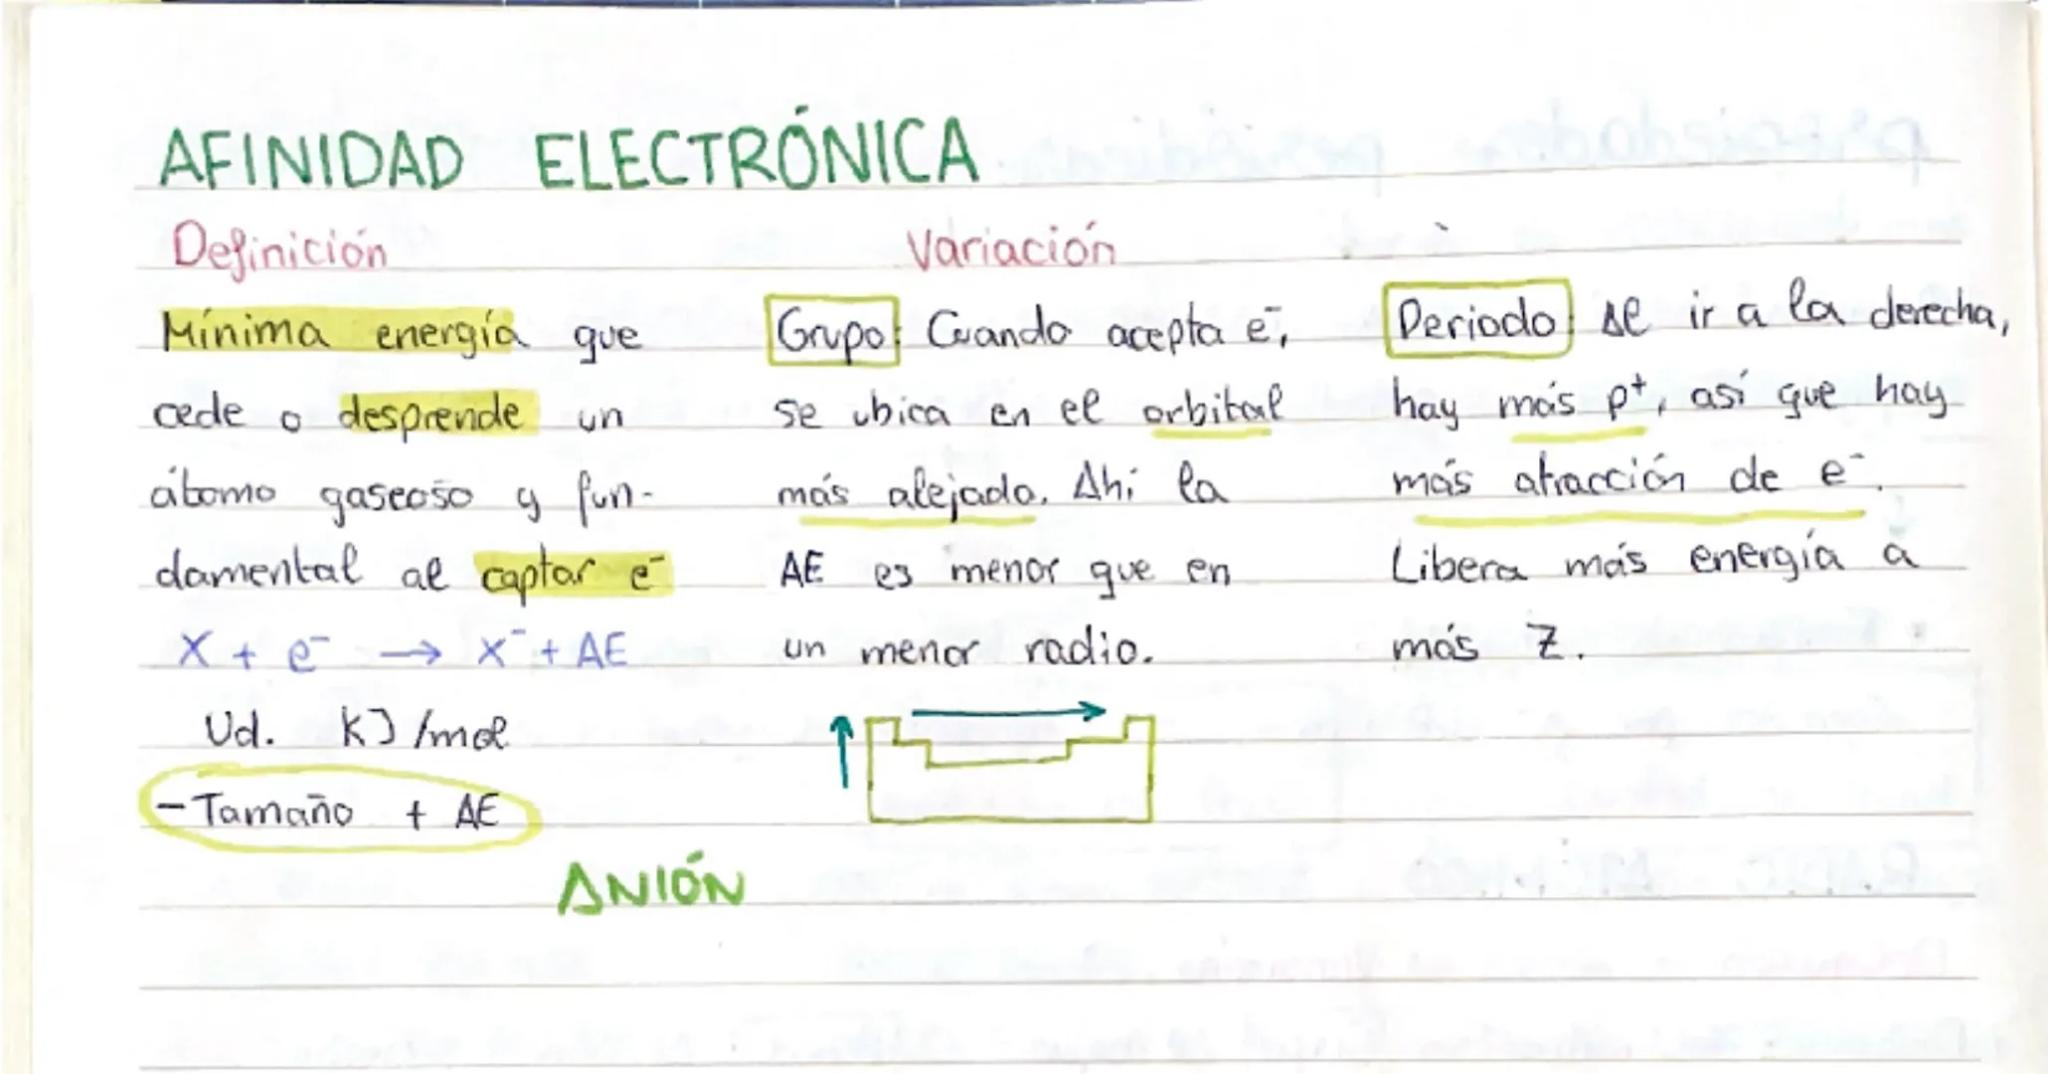 AFINIDAD ELECTRÓNICA
Definición
Mínima energía que
cede o desprende un
átomo gaseoso y fun-
damental al captar e⁻
X + e⁻ → X⁻ + AE
Ud. KJ/mol
- Tamaño + AE
ANIÓN
Variación
Grupo: Cuando acepta e⁻,
se ubica en el orbital
más alejado. Ahí la
AE es menor que en
un menor radio.
Periodo: Al ir a la derecha,
hay más p⁺, así que hay
más atracción de e⁻.
Libera más energía a
más Z.